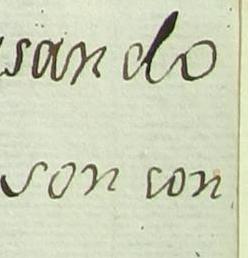 sando
son con